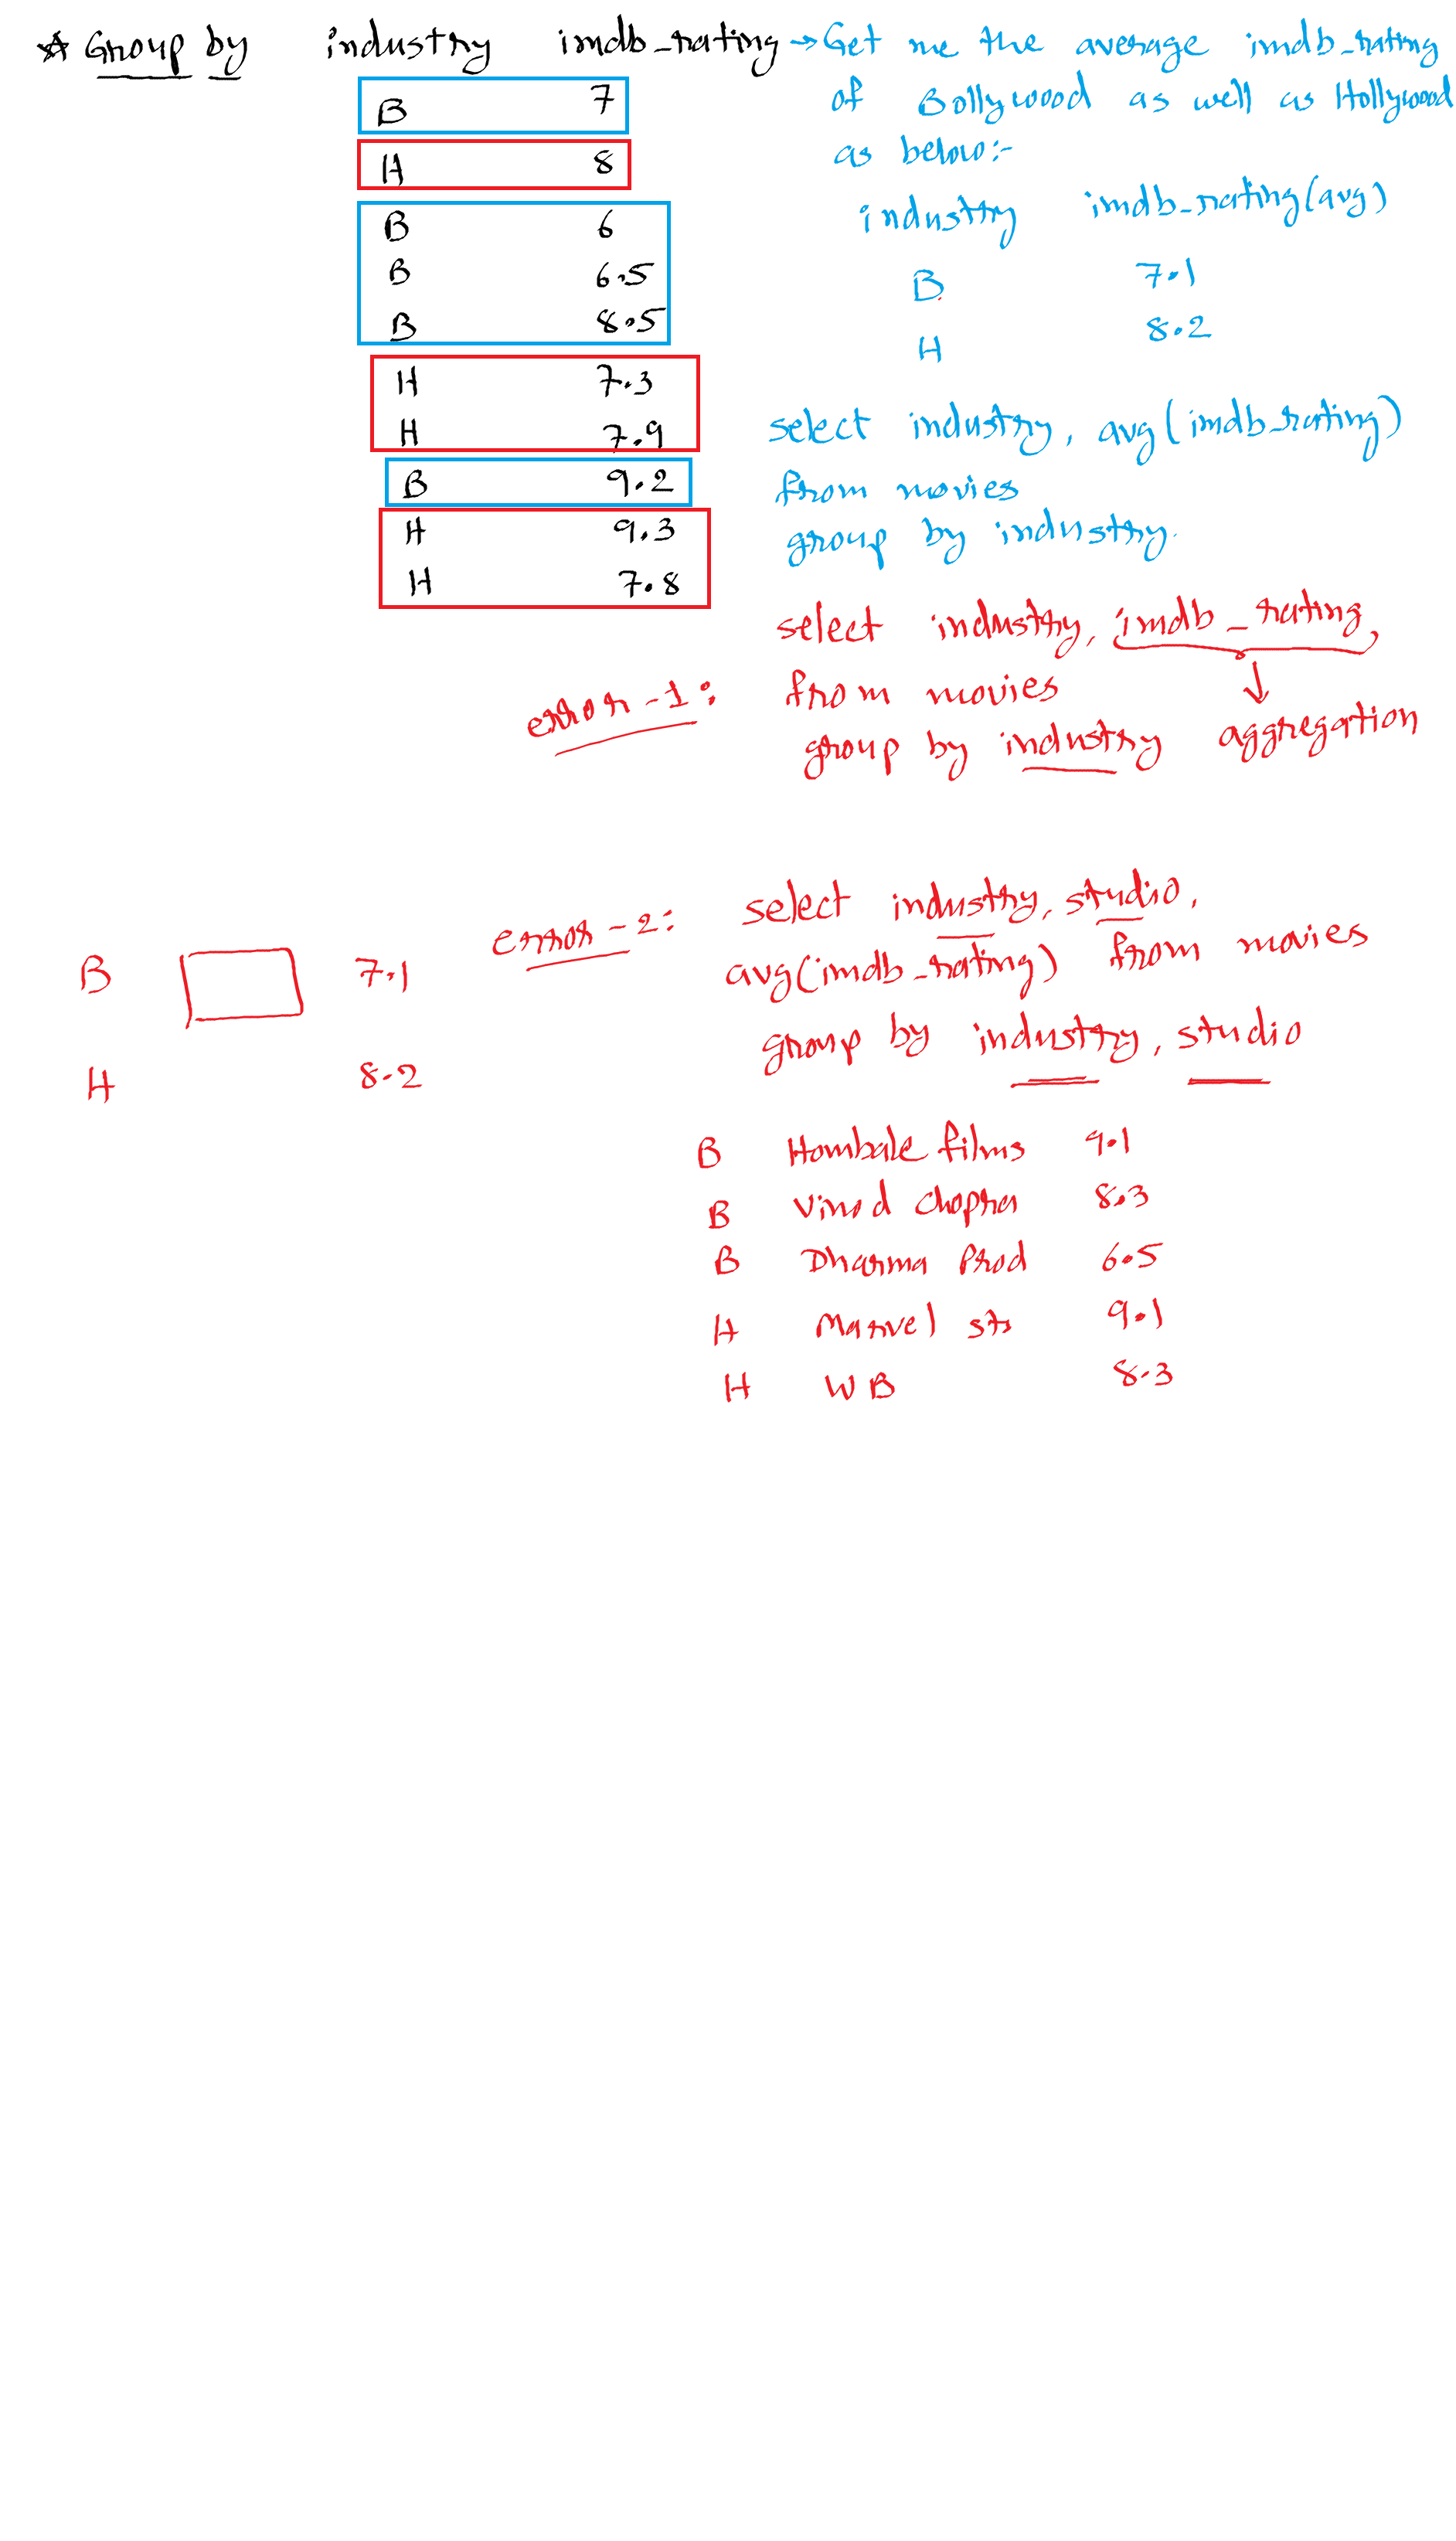 ☆ Group by industry imdb_rating → Get me the average imdb_rating
of Bollywood as well as Hollywood
as below:-
B 7
H 8
B 6
B 6.5
B 8.5
H 7.3
H 7.9
B 9.2
H 9.3
H 7.8
industry imdb_rating(avg)
B 7.1
H 8.2
select industry, avg(imdb_rating)
from movies
group by industry.
error-1:
select industry, imdb_rating,
from movies
group by industry
aggregation
error-2:
select industry, studio,
avg(imdb_rating) from movies
group by industry, studio
B 7.1
H 8.2
B Hombale films 9.1
B Vinod Chopra 8.3
B Dharma Prod 6.5
H Marvel sts 9.1
H WB 8.3